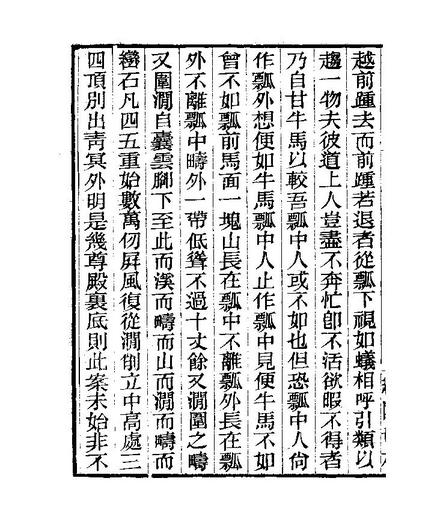 越前踵去而前踵若退者從瓢下視如蟻相呼引類以
趨一物夫彼道上人豈盡不奔忙卽不活欲暇不得者
乃自甘牛馬以較吾瓢中人或不如也但恐瓢中人尙
作瓢外想便如牛馬瓢中人止作瓢中見便牛馬不如
曾不如瓢前馬面一塊山長在瓢中不離瓢外長在瓢
外不離瓢中疇外一帶低聳不過十丈餘又澗圍之疇
又圍澗自囊雲腳下至此而溪而疇而山而澗而疇而
巒石凡四五重始數萬仞屏風復從澗創立中高處三
四頂別出靑冥外明是幾尊殿裏底則此案未始非不